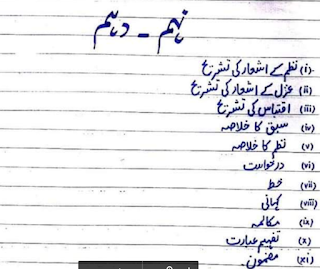 نہم - دہم
(i) نظم کے اشعار کی تشریح
(ii) غزل کے اشعار کی تشریح
(iii) اقتباس کی تشریح
(iv) سبق کا خلاصہ
(v) نظم کا خلاصہ
(vi) درخواست
(vii) خط
(viii) کہانی
(ix) مکالمہ
(x) تفہیم عبارت
(xi) مضمون